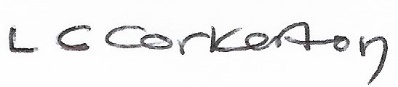 L C Corkerton